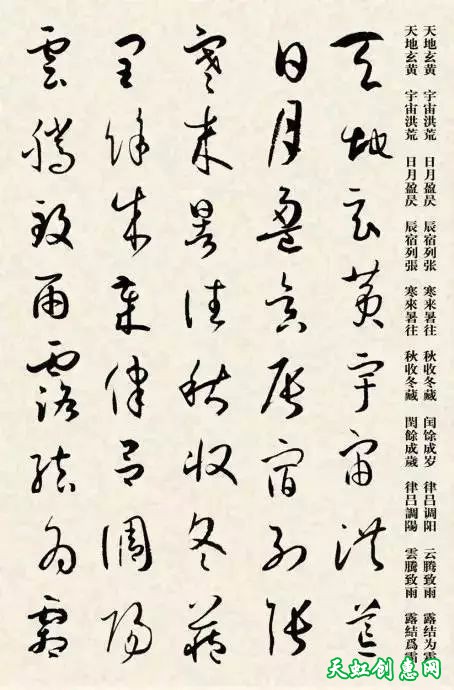 天地玄黄 宇宙洪荒 日月盈昃 辰宿列张 寒来暑往 秋收冬藏 闰馀成岁 律吕调阳 云腾致雨 露结为霜
天地玄黃 宇宙洪荒 日月盈昃 辰宿列張 寒來暑往 秋收冬藏 閏餘成歲 律呂調陽 雲騰致雨 露結爲霜
天地玄黃宇宙洪荒
日月盈昃辰宿列張
寒來暑往秋收冬藏
閏餘成歲律呂調陽
雲騰致雨露結為霜
天虹创惠网